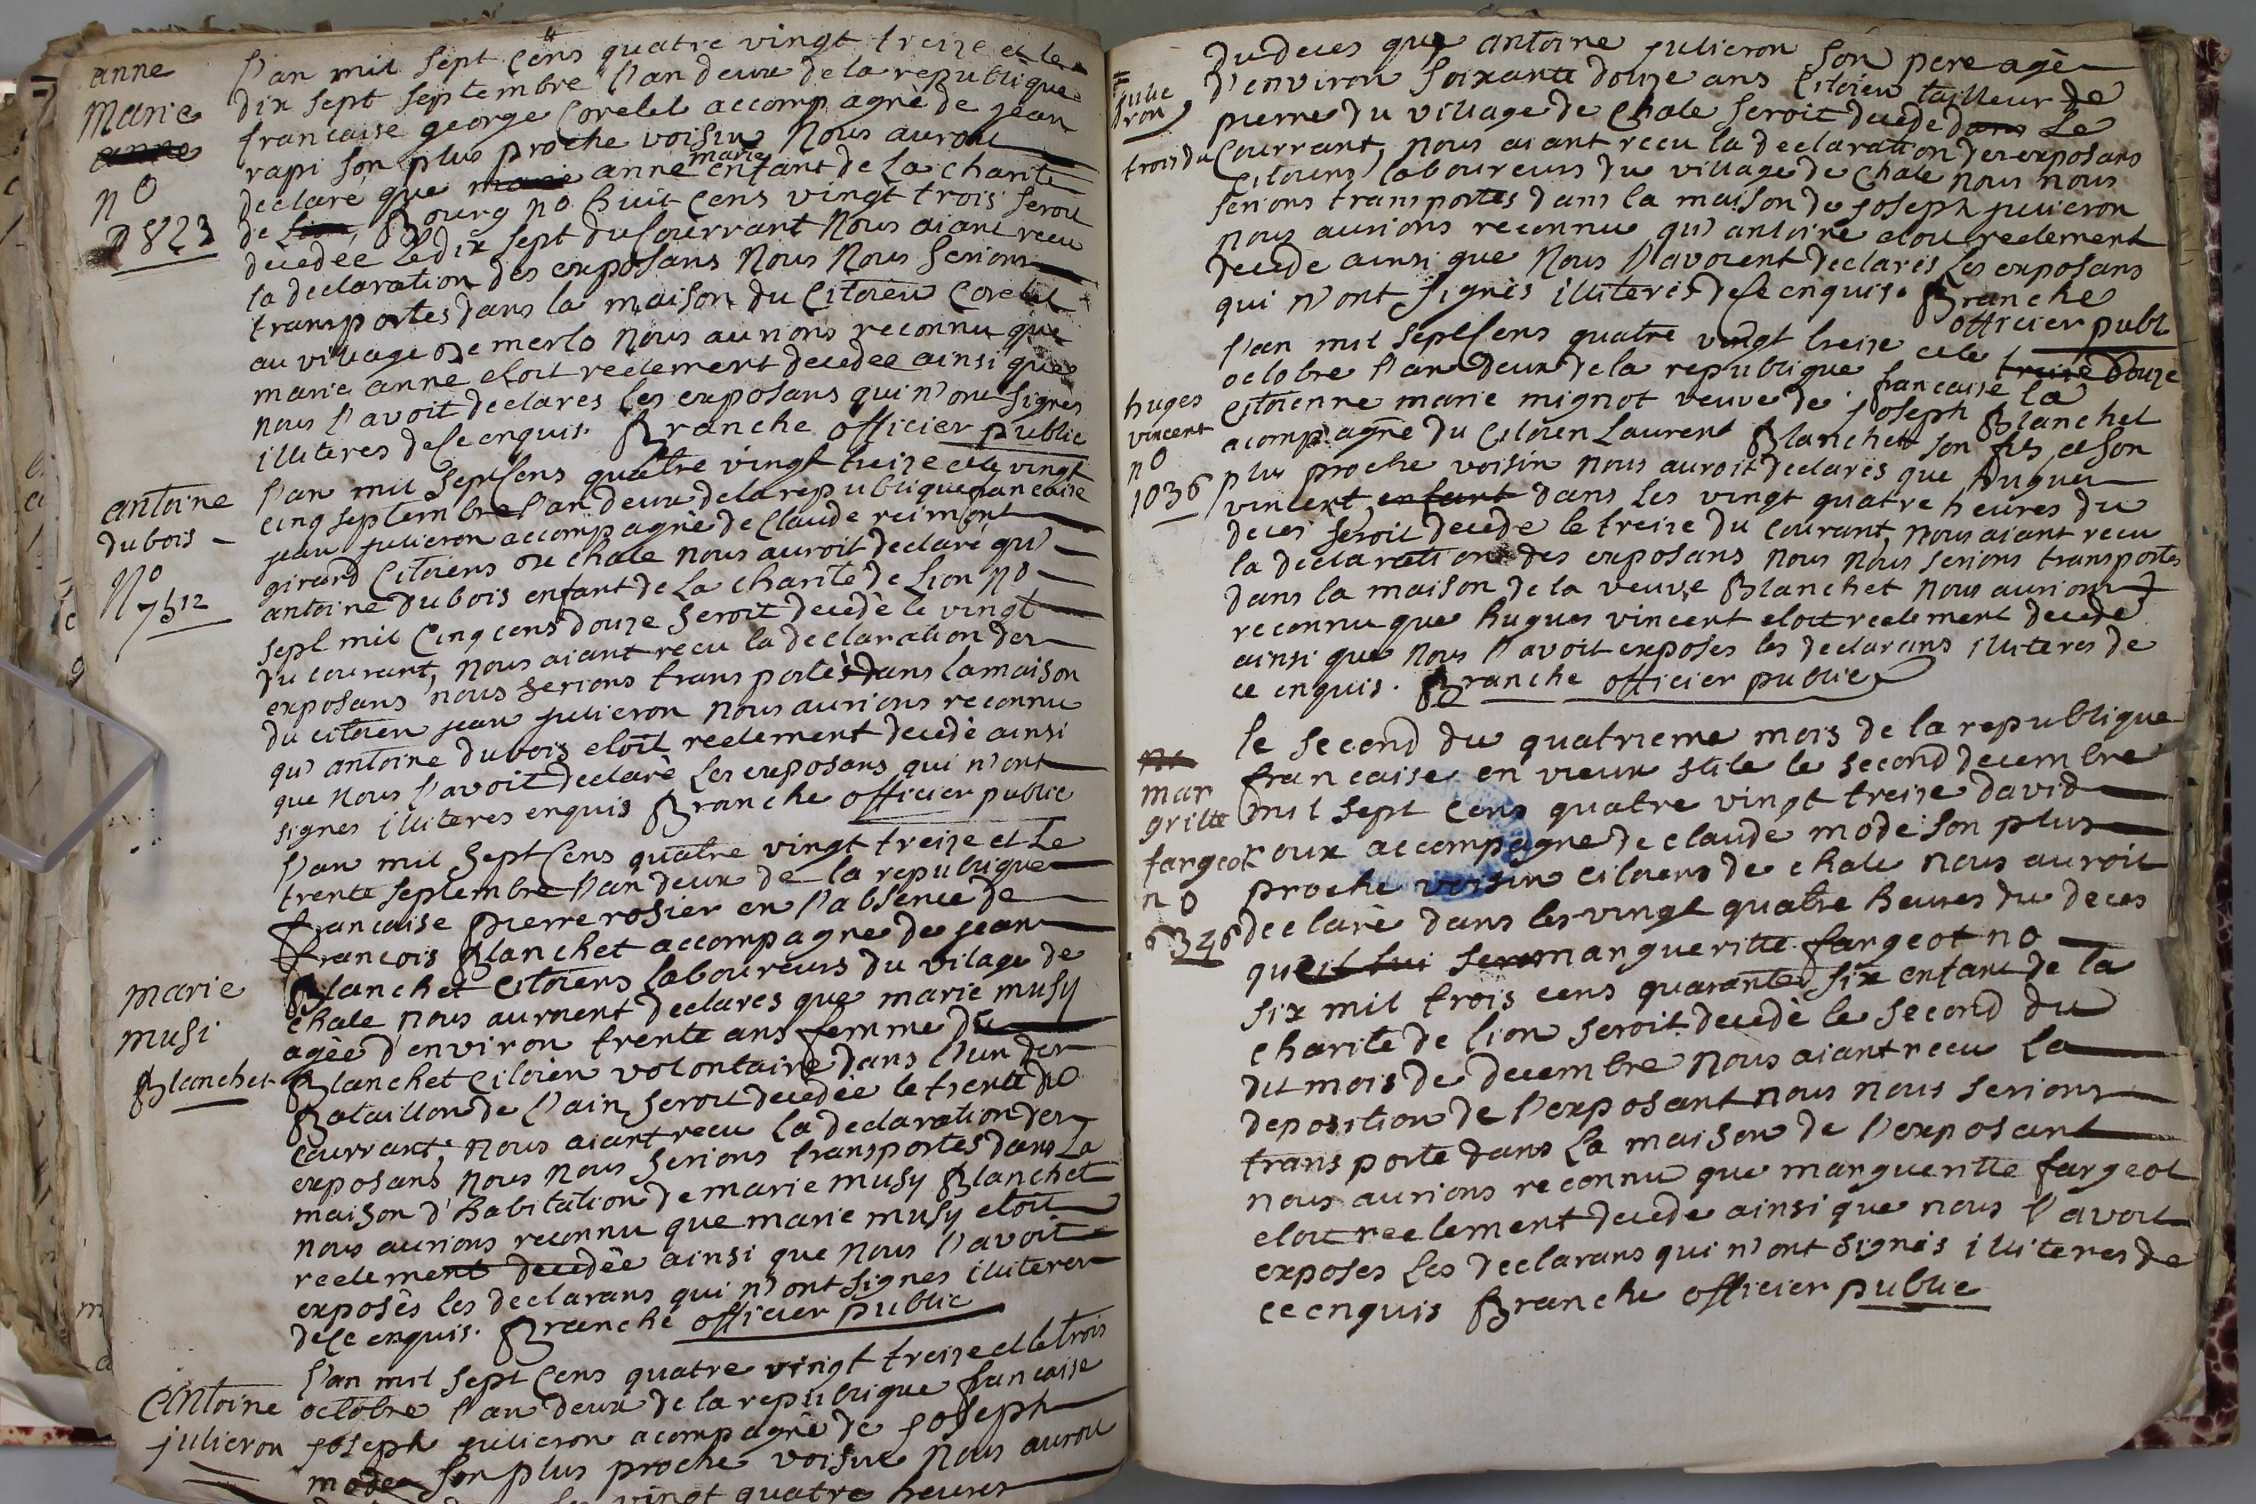 anne
marie
anne
n o
8 823
l'an mil sept cens quatre vingt treize et le
dix sept septembre l'an deux de la republique
francaise george Corelel accompagné de jean
rapi son plus proche voisin Nous auroit
declaré que marie anne marie enfant de la charité
de Lion, Bourg no huit cens vingt trois seroit
decedee le dix sept du Courrant Nous aiant recu
la declaration des exposans Nous Nous serions
transportes dans la maison du Citoien Corelel
au village de merlo Nous aurions reconnu que
marie anne etoit reelement decedee ainsi que
nous l'avoit declares les exposans qui n'ont signes
illiteres de ce enquis. Branche officier public
antoine
dubois
no
7512
l'an mil sept cens quatre vingt treize et le vingt
cinq septembre l'an deux de la republique francaise
jean julieron accompagné de Claude reimont
girard Citoiens de chale nous auroit declaré qu'
antoine dubois enfant de la charité de Lion no
sept mil cinq cens douze seroit decedé le vingt
du courant, nous aiant recu la declaration des
exposans nous serions transportés dans la maison
du citoien jean julieron nous aurions reconnu
qu'antoine dubois etoit reelement decedé ainsi
que nous l'avoit declaré les exposans qui n'ont
signes illiteres enquis Branche officier public
l'an mil sept cens quatre vingt treize et le
trente septembre l'an deux de la republique
francaise pierre rosier en l'absence de
francois Blanchet accompagne de jean
marie
musi
Blanchet
Blanchet citoiens laboureurs du vilage de
chale nous auroient declares que marie musy
agée d'environ trente ans femme du
Blanchet Citoien volontaire dans l'un des
Bataillon de l'ain, seroit decedée le trente du
courrant, nous aiant recu la declaration des
exposans nous nous serions transportes dans la
maison d'habitation de marie musy Blanchet
nous aurions reconnu que marie musy etoit
reelement decedée ainsi que nous l'avoit
exposés les declarans qui n'ont signes illiteres
de ce enquis. Branche officier public
antoine
julieron
l'an mil sept cens quatre vingt treize et le trois
octobre l'an deux de la republique francaise
joseph julieron acompagné de joseph
modee son plus proche voisin nous auroit
vingt quatre heures
julie
ron
du deces que antoine julieron son pere agé
d'environ soixante douze ans Citoien tailleur de
pierre du village de chale seroit decede dans le
trois du Courrant, nous aiant recu la declaration des exposans
citoiens laboureurs du village de chale nous nous
serions transportes dans la maison de joseph julieron
nous aurions reconnu qu'antoine etoit reelement
decede ainsi que nous l'avoient declarés les exposans
qui n'ont signès illiterés de ce enquis. Branche
officier publ
huges
vincent
no
1036
l'an mil sept cens quatre vingt treize et le treize douze
octobre l'an deux de la republique francaise la
citoienne marie mignot veuve de joseph Blanchet
acompagne du citoien Laurent Blanchet son fils et son
plus proche voisin nous auroit declarés que hugues
vincent enfant dans les vingt quatre heures du
deces seroit decede le treize du courant, nous aiant recu
la declaration des exposans nous nous serions transportes
dans la maison de la veuve Blanchet nous aurions
reconnu que hugues vincent etoit reelement decede
ainsi que nous l'avoit exposes les declarans illiteres de
ce enquis. Branche officier public
mar
gritte
fargeot
n o
6346
le second du quatrieme mois de la republique
francaise en vieux stile le second decembre
mil sept cens quatre vingt treize david
roux accompagne de claude mode son plus
proche voisin citoiens de chale nous auroit
declarè dans les vingt quatre heures du deces
que il lui sera margueritte fargeot no
six mil trois cens quarante six enfant de la
charite de lion seroit decedè le second du
dit mois de decembre nous aiant recu la
deposition de l'exposant nous nous serions
transporte dans la maison de l'exposant
nous aurions reconnu que margueritte fargeot
etoit reelement decede ainsi que nous l'avoit
exposes les declarans qui n'ont signés illiteres de
ce enquis Branche officier public